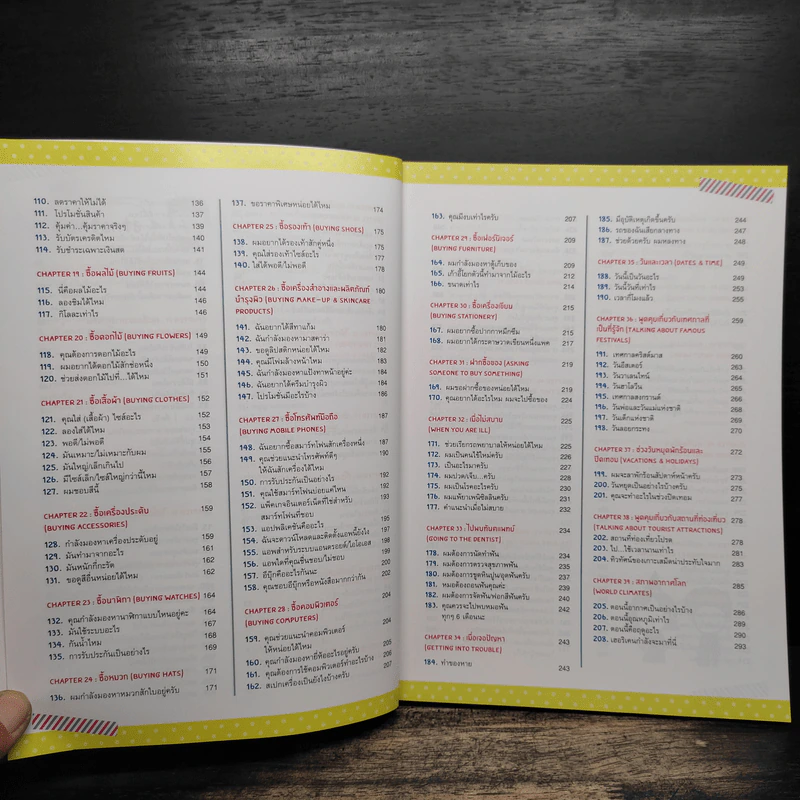 110. ลดราคาให้ไม่ได้ 136
111. โปรโมชันสินค้า 137
112. คุ้มค่า...คุ้มราคาจริงๆ 139
113. รับบัตรเครดิตไหม 140
114. รับชำระเฉพาะเงินสด 141
CHAPTER 19 : ซื้อผลไม้ (BUYING FRUITS) 144
115. นี่คือผลไม้อะไร 144
116. ลองชิมได้ไหม 146
117. กิโลละเท่าไร 146
CHAPTER 20 : ซื้อดอกไม้ (BUYING FLOWERS) 149
118. คุณต้องการดอกไม้อะไร 149
119. ผมอยากได้ดอกไม้สักช่อหนึ่ง 150
120. ช่วยส่งดอกไม้ไปที่...ได้ไหม 151
CHAPTER 21 : ซื้อเสื้อผ้า (BUYING CLOTHES) 152
121. คุณใส่ (เสื้อผ้า) ไซส์อะไร 152
122. ลองใส่ได้ไหม 153
123. พอดี/ไม่พอดี 154
124. มันเหมาะ/ไม่เหมาะกับผม 155
125. มันใหญ่/เล็กเกินไป 156
126. มีไซส์เล็ก/ไซส์ใหญ่กว่านี้ไหม 157
127. ผมชอบสีนี้ 158
CHAPTER 22 : ซื้อเครื่องประดับ 159
(BUYING ACCESSORIES)
128. กำลังมองหาเครื่องประดับอยู่ 159
129. มันทำมาจากอะไร 161
130. มันหนักกี่กะรัต 162
131. ขอดูสีอื่นหน่อยได้ไหม 162
CHAPTER 23 : ซื้อนาฬิกา (BUYING WATCHES) 164
132. คุณกำลังมองหานาฬิกาแบบไหนอยู่คะ 164
133. มันใช้ระบบอะไร 167
134. กันน้ำไหม 168
135. การรับประกันเป็นอย่างไร 169
CHAPTER 24 : ซื้อหมวก (BUYING HATS) 171
136. ผมกำลังมองหาหมวกสักใบอยู่ครับ 171
137. ขอราคาพิเศษหน่อยได้ไหม 174
CHAPTER 25 : ซื้อรองเท้า (BUYING SHOES) 175
138. ผมอยากได้รองเท้าสักคู่หนึ่ง 175
139. คุณใส่รองเท้าไซส์อะไร 177
140. ใส่ได้พอดี/ไม่พอดี 178
CHAPTER 26 : ซื้อเครื่องสำอางและผลิตภัณฑ์ 180
บำรุงผิว (BUYING MAKE-UP & SKINCARE
PRODUCTS)
141. ฉันอยากได้สีทาแก้ม 180
142. ฉันกำลังมองหามาสคาร่า 181
143. ขอดูลิปสติกหน่อยได้ไหม 182
144. คุณมีโฟมล้างหน้าไหม 183
145. ฉันกำลังมองหาแป้งทาหน้าอยู่ค่ะ 184
146. ฉันอยากได้ครีมบำรุงผิว 185
147. โปรโมชันมีอะไรบ้าง 186
CHAPTER 27 : ซื้อโทรศัพท์มือถือ 187
(BUYING MOBILE PHONES)
148. ฉันอยากซื้อสมาร์ทโฟนสักเครื่องหนึ่ง 187
149. คุณช่วยแนะนำโทรศัพท์ดีๆ
ให้ฉันสักเครื่องได้ไหม
150. การรับประกันเป็นอย่างไร
151. คุณใช้สมาร์ทโฟนบ่อยแค่ไหน
152. แพ็คเกจอินเตอร์เน็ตที่ใช้สำหรับ
สมาร์ทโฟนที่ชอบ
153. แอปพลิเคชันคืออะไร 195
154. ฉันจะดาวน์โหลดและติดตั้งแอพนี้ยังไง
155. แอพสำหรับระบบแอนดรอยด์/ไอโอเอส
156. แอพใดที่คุณชื่นชอบ/ไม่ชอบ
157. อีบุ๊กคืออะไรกันนะ
158. คุณชอบอีบุ๊กหรือหนังสือมากกว่ากัน
CHAPTER 28 : ซื้อคอมพิวเตอร์ 204
(BUYING COMPUTERS)
159. คุณช่วยแนะนำคอมพิวเตอร์ 204
ให้หน่อยได้ไหม
160. คุณกำลังมองหายี่ห้ออะไรอยู่ครับ 205
161. คุณต้องการใช้คอมพิวเตอร์ทำอะไรบ้าง 206
162. สเปกเครื่องเป็นยังไงบ้างครับ 207
163. คุณมีงบเท่าไรครับ 207
CHAPTER 29 : ซื้อเฟอร์นิเจอร์ 209
(BUYING FURNITURE)
164. ผมกำลังมองหาตู้เก็บของ 209
165. เก้าอี้โยกตัวนี้ทำมาจากไม้อะไร 211
166. ขนาดเท่าไร 212
CHAPTER 30 : ซื้อเครื่องเขียน 215
(BUYING STATIONERY)
167. ผมอยากซื้อปากกาหมึกซึม 215
168. ผมอยากได้กระดาษวาดเขียนหนึ่งแพค 217
CHAPTER 31 : ฝากซื้อของ (ASKING 219
SOMEONE TO BUY SOMETHING)
169. ผมขอฝากซื้อของหน่อยได้ไหม 219
170. คุณอยากได้อะไรไหม ผมจะไปซื้อของ 224
CHAPTER 32 : เมื่อไม่สบาย 225
(WHEN YOU ARE ILL)
171. ช่วยเรียกรถพยาบาลให้หน่อยได้ไหม 225
172. ผมเป็นคนไข้ใหม่ครับ 226
173. เป็นอะไรมาครับ 227
174. ผมปวด/เจ็บ...ครับ 228
175. ผมเป็นโรคอะไรครับ 229
176. ผมแพ้ยาเพนิซิลลินครับ 230
177. คำแนะนำเมื่อไม่สบาย 232
CHAPTER 33 : ไปพบทันตแพทย์ 234
(GOING TO THE DENTIST)
178. ผมต้องการนัดทำฟัน 234
179. ผมต้องการตรวจสุขภาพฟัน 235
180. ผมต้องการขูดหินปูน/อุดฟันครับ 237
181. หมอจะถอนฟันคุณค่ะ 239
182. ผมต้องการจัดฟัน/ฟอกสีฟันครับ 240
183. คุณควรจะไปพบหมอฟัน 242
ทุกๆ 6 เดือนนะ
CHAPTER 34 : เมื่อเจอปัญหา 243
(GETTING INTO TROUBLE)
184. ทำของหาย 243
185. มีอุบัติเหตุเกิดขึ้นครับ 244
186. รถของฉันเสียกลางทาง 247
187. ช่วยด้วยครับ ผมหลงทาง 248
CHAPTER 35 : วันและเวลา (DATES & TIME) 249
188. วันนี้เป็นวันอะไร 249
189. วันนี้วันที่เท่าไร 251
190. เวลากี่โมงแล้ว 255
CHAPTER 36 : พูดคุยเกี่ยวกับเทศกาลที่ 259
เป็นที่รู้จัก (TALKING ABOUT FAMOUS
FESTIVALS)
191. เทศกาลคริสต์มาส 260
192. วันอีสเตอร์ 263
193. วันวาเลนไทน์ 264
194. วันฮาโลวีน 265
195. เทศกาลสงกรานต์ 265
196. วันพ่อและวันแม่แห่งชาติ 266
197. วันเด็กแห่งชาติ 268
198. วันลอยกระทง 270
CHAPTER 37 : ช่วงวันหยุดพักร้อนและ 272
ปิดเทอม (VACATIONS & HOLIDAYS)
199. ผมจะลาพักร้อนสัปดาห์หน้าครับ 273
200. วันหยุดเป็นอย่างไรบ้างครับ 275
201. คุณจะทำอะไรในช่วงปิดเทอม 276
CHAPTER 38 : พูดคุยเกี่ยวกับสถานที่ท่องเที่ยว 278
(TALKING ABOUT TOURIST ATTRACTIONS)
202. สถานที่ท่องเที่ยวโปรด 278
203. ไป...ใช้เวลานานเท่าไร 281
204. ทิวทัศน์ของเกาะเสม็ดน่าประทับใจมาก 281
CHAPTER 39 : สภาพอากาศโลก 285
(WORLD CLIMATES)
205. ตอนนี้อากาศเป็นอย่างไรบ้าง 286
206. ตอนนี้อุณหภูมิเท่าไร 289
207. ตอนนี้คือฤดูอะไร 290
208. เฮอริเคนกำลังจะมาที่นี่ 293